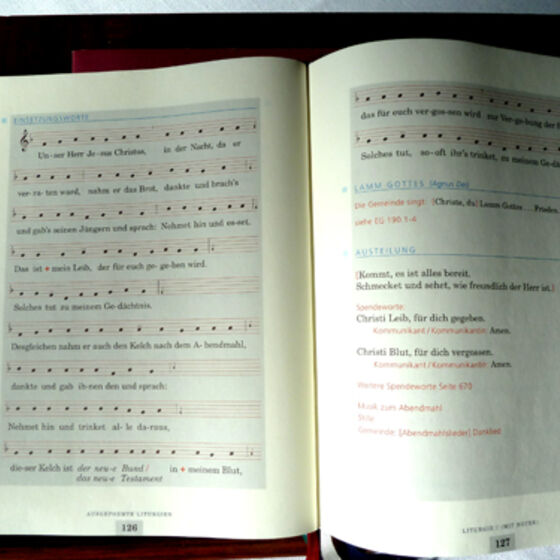 EINSETZUNGSWORTE
Un-ser Herr Je-sus Christus, in der Nacht, da er
ver-ra-ten ward, nahm er das Brot, dankte und brach's
und gab's seinen Jüngern und sprach: Nehmet hin und es-set.
Das ist + mein Leib, der für euch ge-ge-ben wird.
Solches tut zu meinem Ge-dächtnis.
Desgleichen nahm er auch den Kelch nach dem A-bendmahl,
dankte und gab ih-nen den und sprach:
Nehmet hin und trinket al-le da-raus,
die-ser Kelch ist der neu-e Bund / in + meinem Blut,
das neu-e Testament
AUSGEFORMTE LITURGIEN
126
das für euch ver-gos-sen wird zur Ver-ge-bung der
Solches tut, so-oft ihr's trinket, zu meinem Ge-dä
LAMM GOTTES (Agnus Dei)
Die Gemeinde singt: [Christe, du] Lamm Gottes ... Frieden.
siehe EG 190.1-4
AUSTEILUNG
[Kommt, es ist alles bereit.
Schmecket und sehet, wie freundlich der Herr ist.]
Spendeworte:
Christi Leib, für dich gegeben.
Kommunikant / Kommunikantin: Amen.
Christi Blut, für dich vergossen.
Kommunikant / Kommunikantin: Amen.
Weitere Spendeworte Seite 670
Musik zum Abendmahl
Stille
Gemeinde: [Abendmahlslieder] Danklied
LITURGIE I (MIT NOTEN)
127